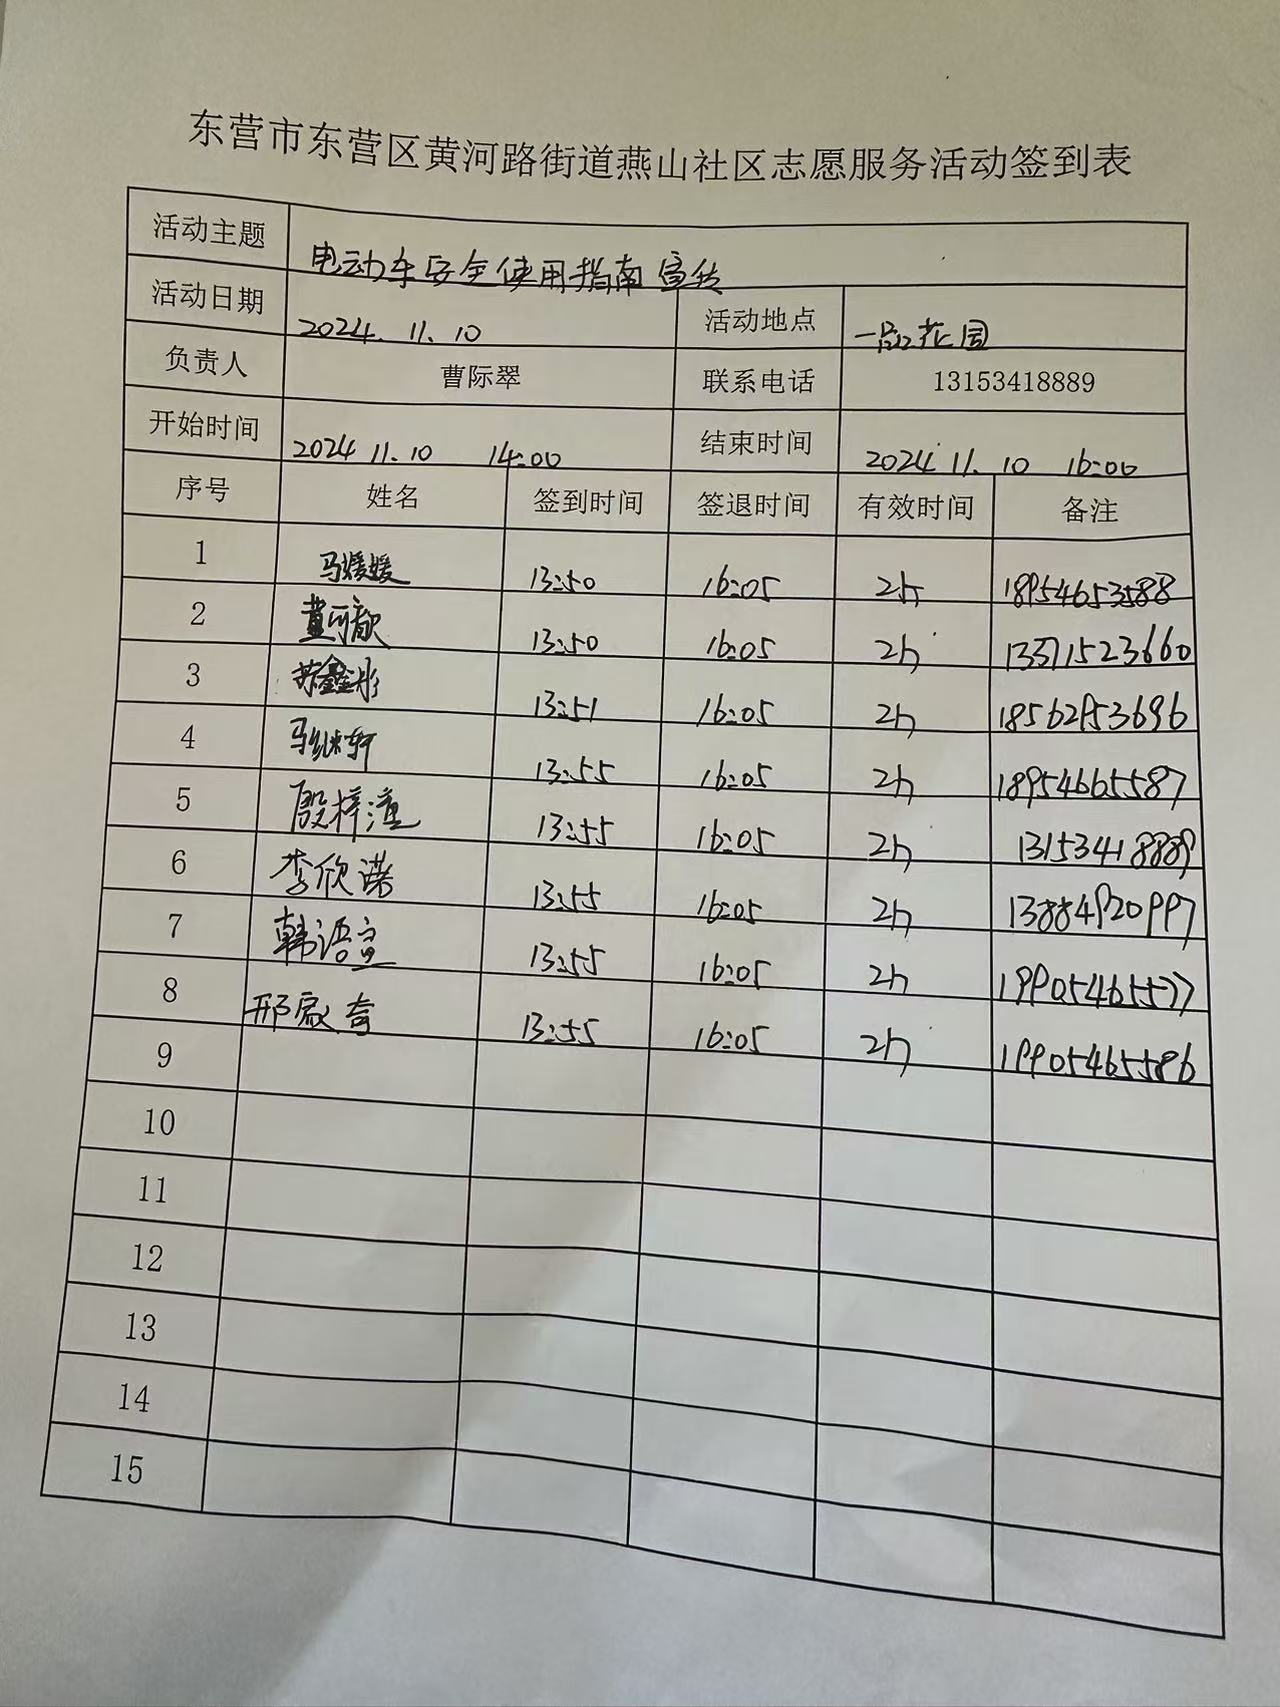 东营市东营区黄河路街道燕山社区志愿服务活动签到表
活动主题 电动车安全使用指南宣传
活动日期 2024.11.10 活动地点 一品花园
负责人 曹际翠 联系电话 13153418889
开始时间 2024 11.10 14:00 结束时间 2024 11.10 16:00
序号 姓名 签到时间 签退时间 有效时间 备注
1 马媛媛 13:50 16:05 2h 18954653588
2 黄可歆 13:50 16:05 2h 13371523660
3 苏鑫彤 13:51 16:05 2h 18562953696
4 马继轩 13:55 16:05 2h 18954665587
5 殷梓潼 13:55 16:05 2h 13153418889
6 李欣诺 13:55 16:05 2h 13884920997
7 韩语萱 13:55 16:05 2h 19905465577
8 邢 13:55 16:05 2h 19905465586
9
10
11
12
13
14
15